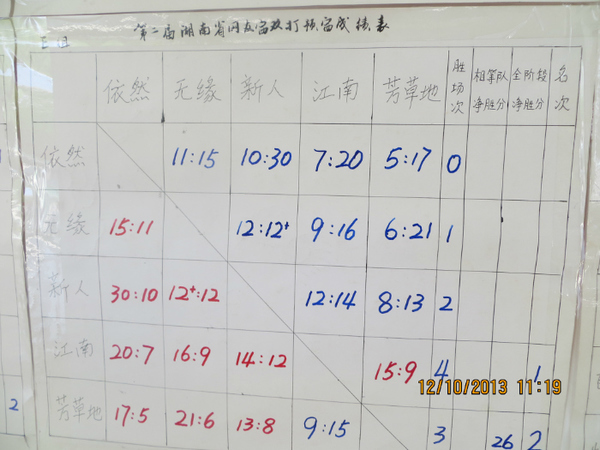 E组
第二届湖南省网友双打预赛成绩表
依然 无缘 新人 江南 芳草地 胜场次 相等队净胜分 全阶段净胜分 名次
依然 11:15 10:30 7:20 5:17 0
无缘 15:11 12:12+ 9:16 6:21 1
新人 30:10 12+:12 12:14 8:13 2
江南 20:7 16:9 14:12 15:9 4 1
芳草地 17:5 21:6 13:8 9:15 3 26 2
2
12/10/2013 11:19